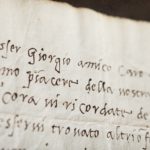 sser Giorgio amico Caro
mo piacere della vostra
cora vi ricordate de
sservi trovato altrio f